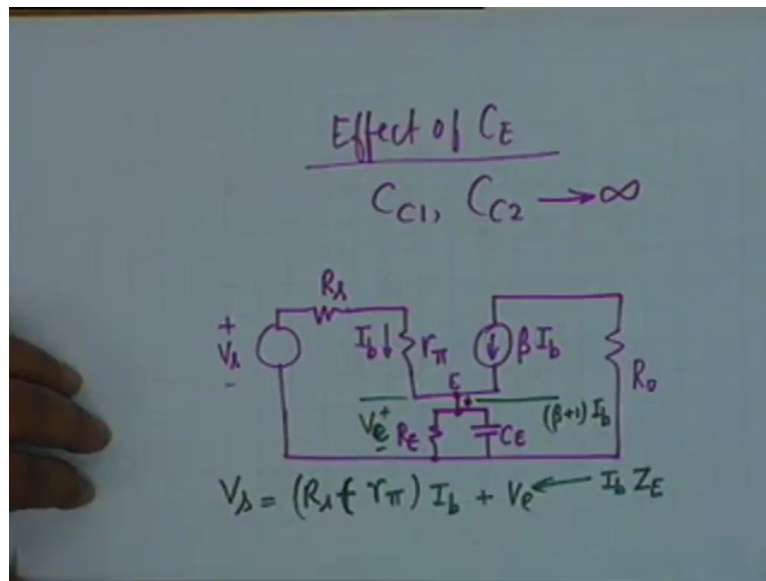 Effect of C_E
C_C1, C_C2 → ∞
R_s
+ V_s -
I_b ↓ r_π
β I_b
R_o
E
V_e + -
R_E
C_E
(β+1) I_b
V_s = (R_s + r_π) I_b + V_e ← I_b Z_E